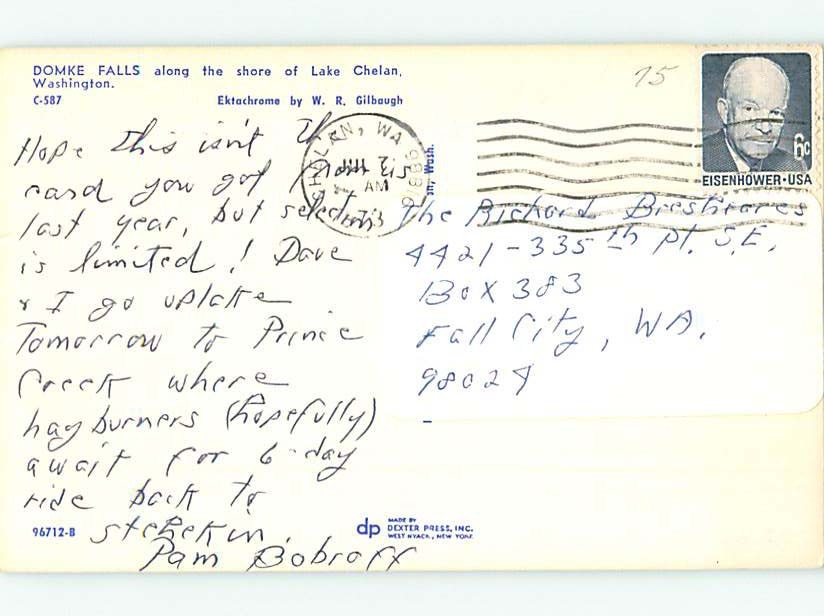 DOMKE FALLS along the shore of Lake Chelan,
Washington.
C-587 Ektachrome by W. R. Gilbaugh
75
6c
EISENHOWER·USA
CHELAN, WA 98816
AM
Wash.
Hope this isn't the
card you got from us
last year, but selection
is limited! Dave
& I go uplake
Tomorrow to Prince
Creek where
hayburners (hopefully)
await for 6-day
ride back to
stehekin.
Pam Bobroff
The Richard
4421-335th Pl. S.E.
Box 383
Fall City, WA.
98024
96712-B
dp MADE BY
DEXTER PRESS, INC.
WEST NYACK, NEW YORK